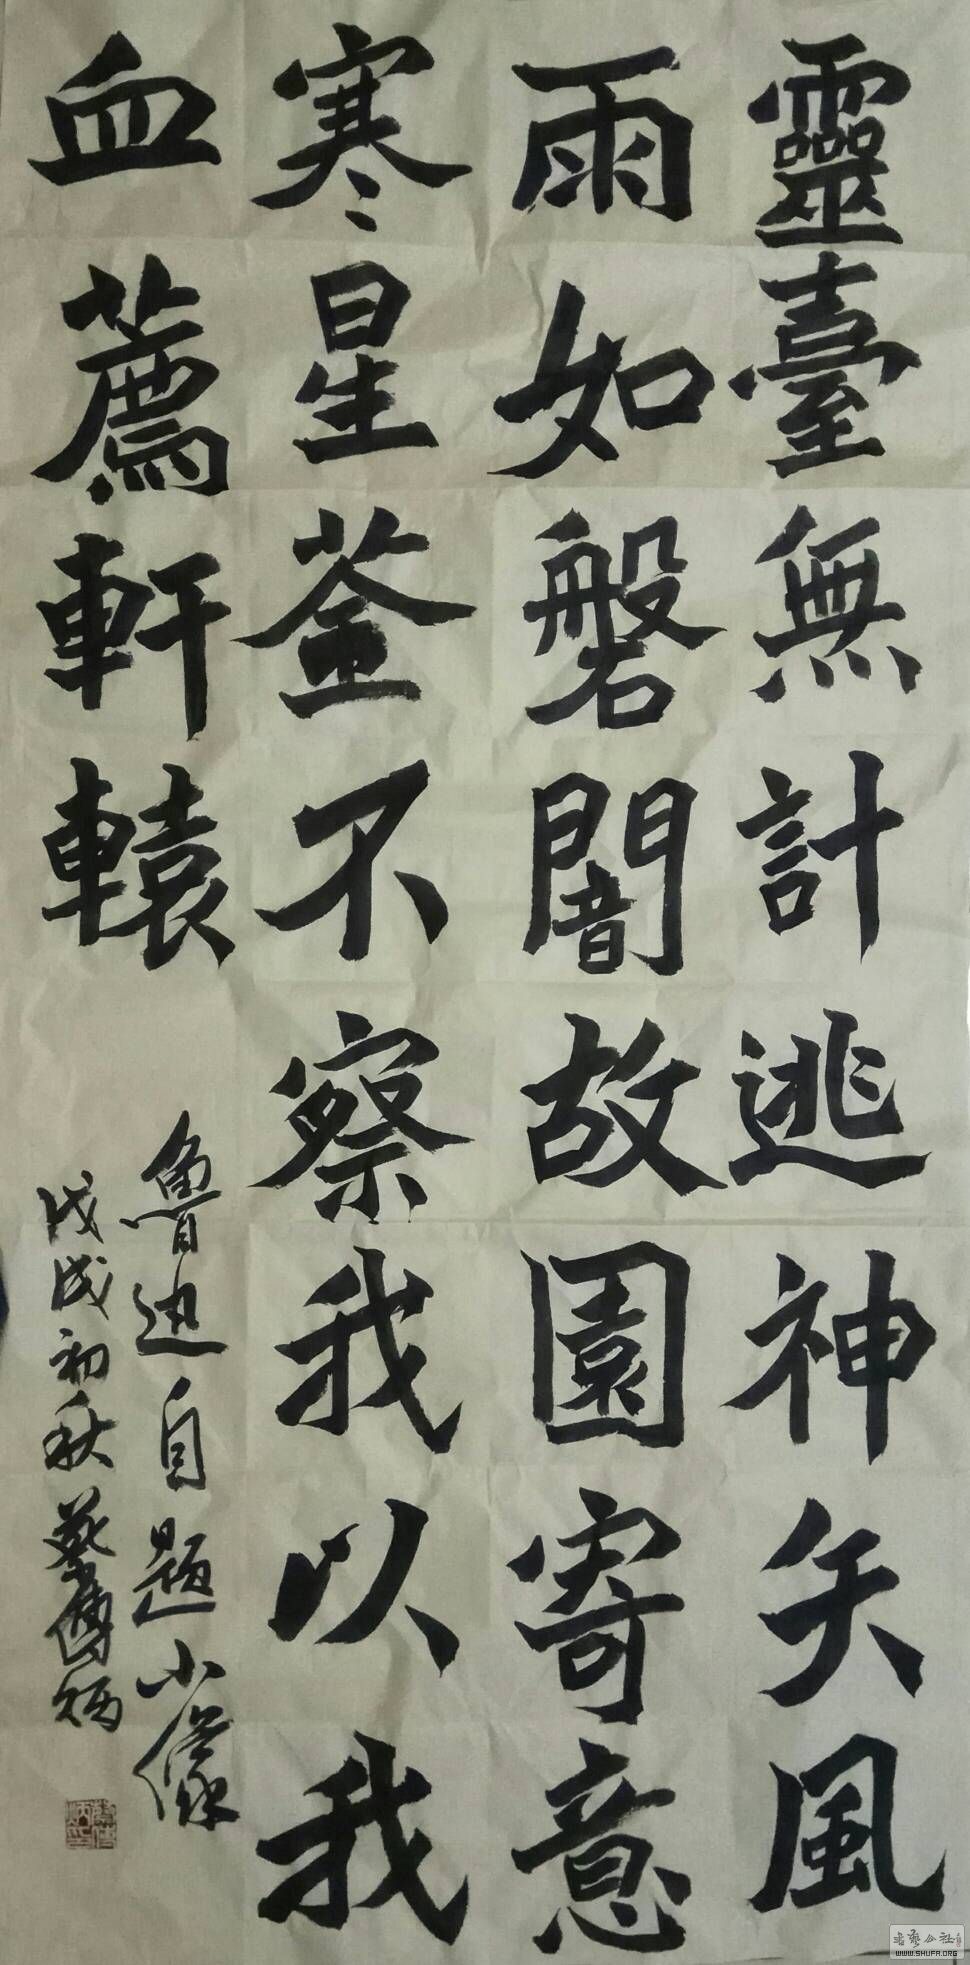 靈臺無計逃神矢風
雨如磐闇故園寄意
寒星荃不察我以我
血薦軒轅
魯迅自題小像
戊戌初秋蔡傳炳
書藝公社
WWW.SHUFA.ORG